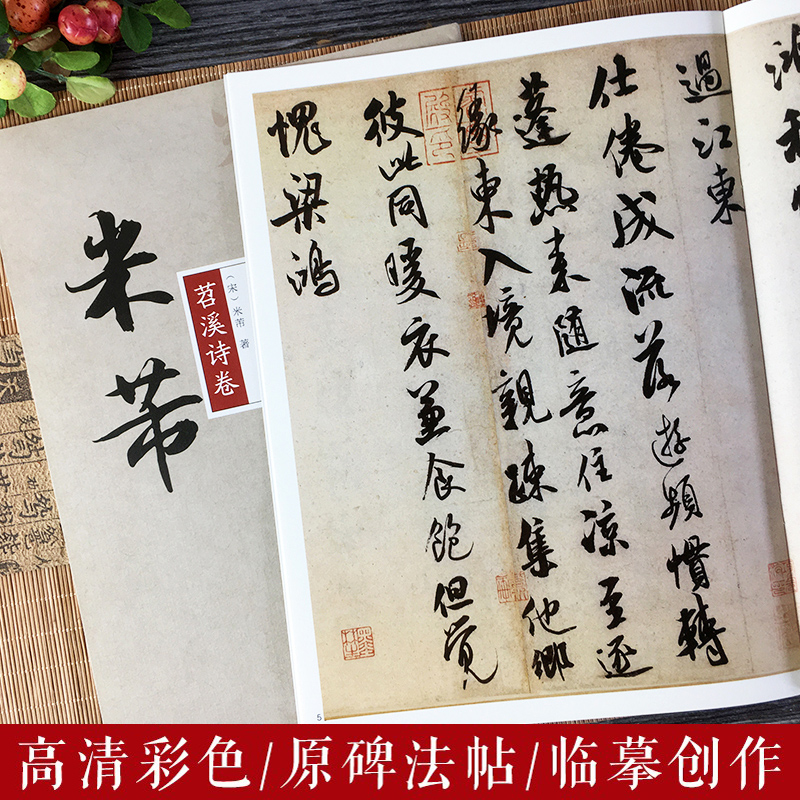 過江東
仕倦成流落游頻慣轉
蓬熱来随意住凉至逐
緣東入境親疎集他鄉
彼此同暖衣兼食飽但覺
愧梁鴻
5
米芾
苕溪诗卷
（宋）米芾 著
高清彩色/原碑法帖/临摹创作